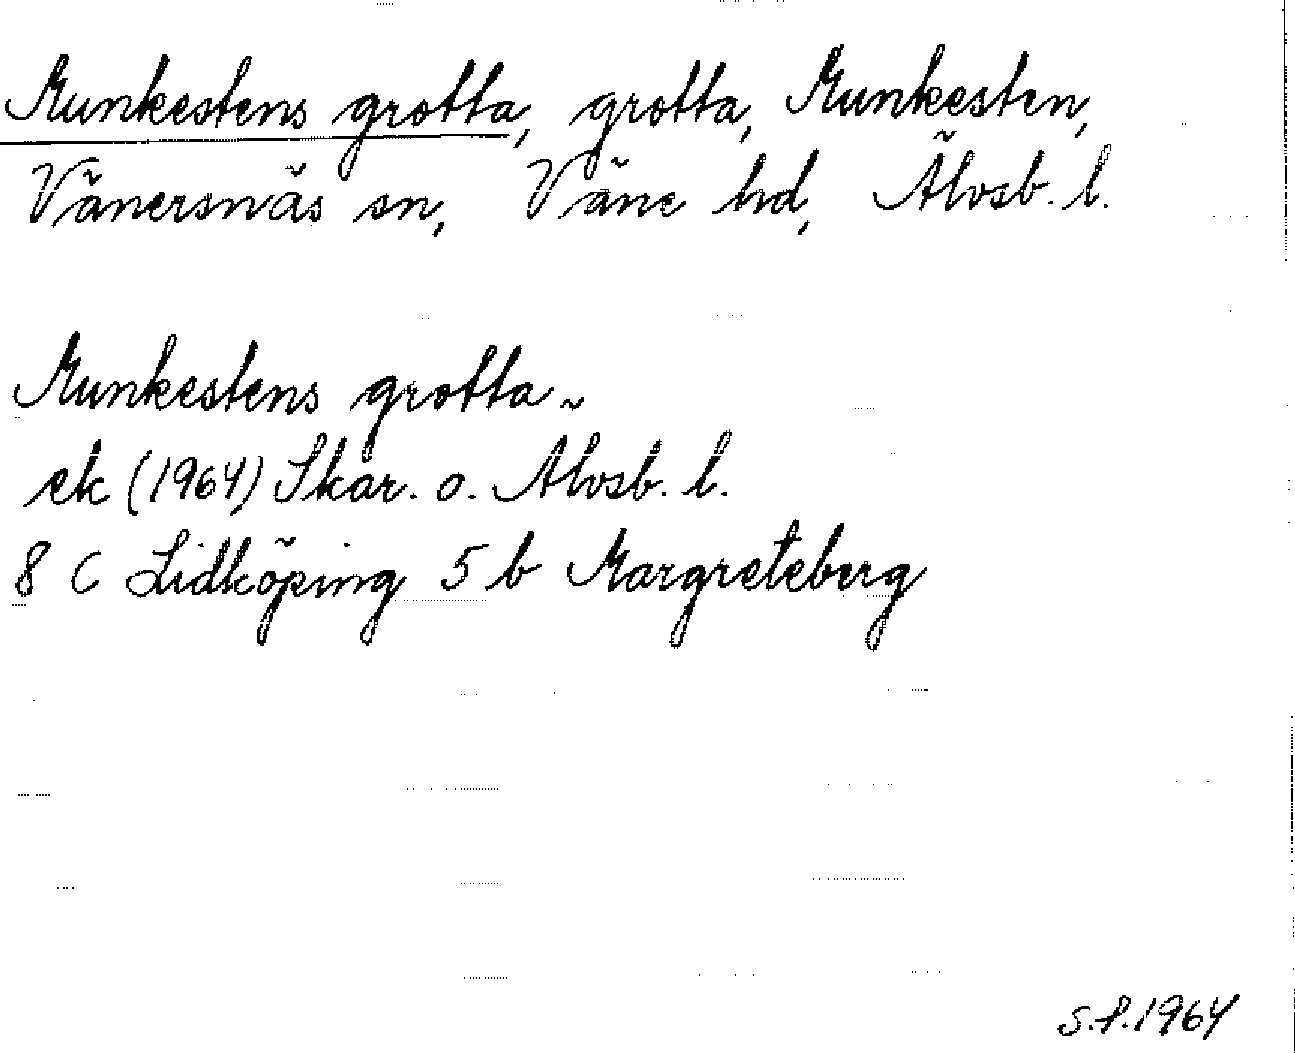 Munkestens grotta, grotta, Munkesten,
Vänersnäs sn, Väne hd, Älvsb. l.
Munkestens grotta ~
ek (1964) Skar. o. Älvsb. l.
8 C Lidköping 5 b Margreteberg
S.P. 1964